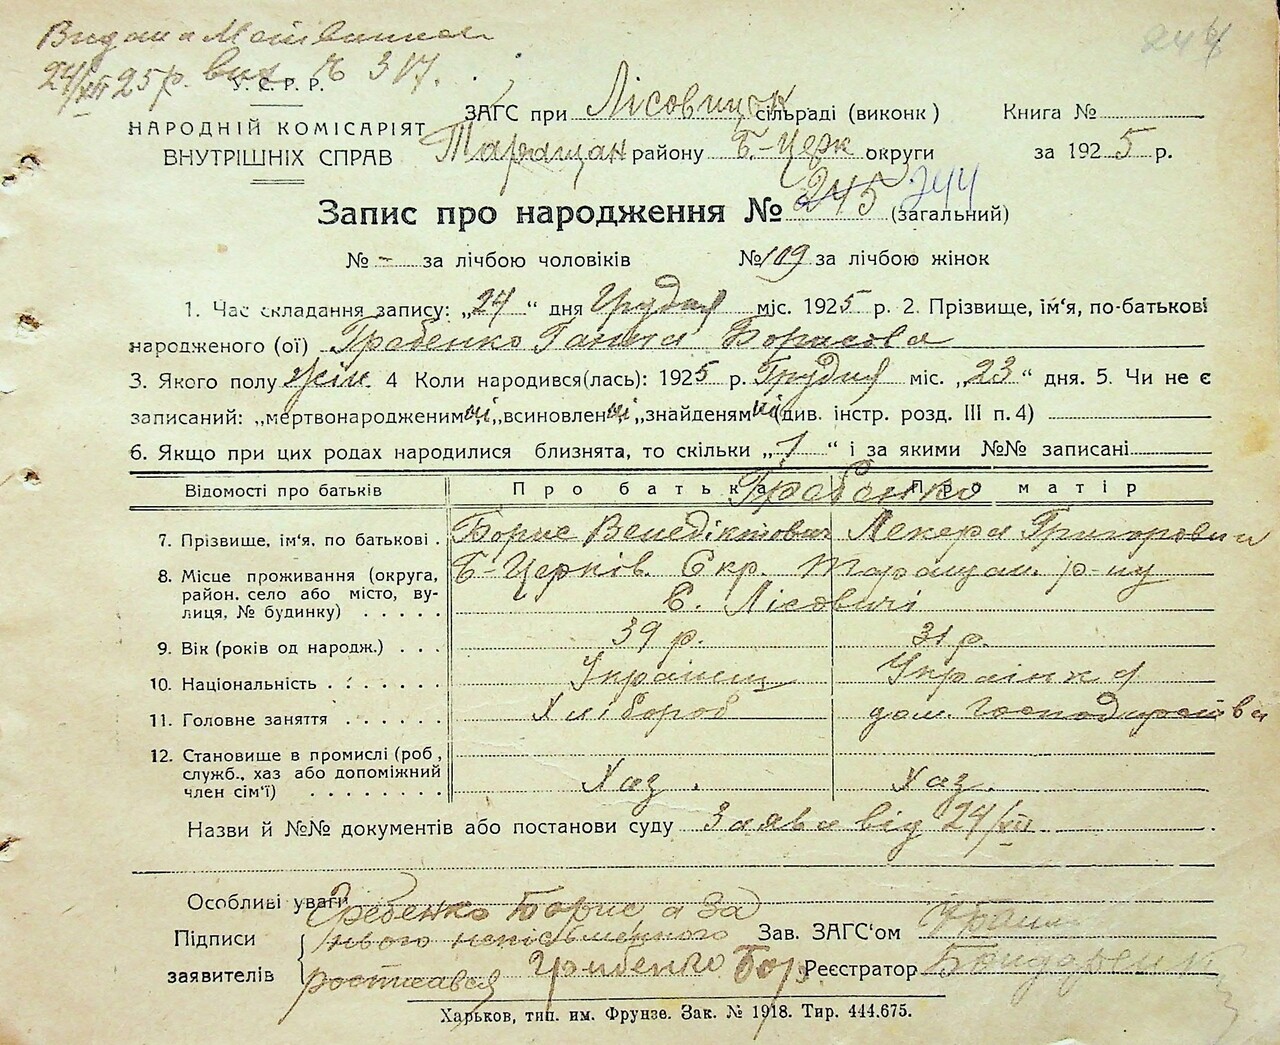 Видана
24/XII 25 р. вих. № 317.
244
У. С. Р. Р.
НАРОДНІЙ КОМІСАРІЯТ
ВНУТРІШНІХ СПРАВ
ЗАГС при Лісовицьк сільраді (виконк)
Книга №
Таращан району Б-Церк округи
за 1925 р.
Запис про народження № 245 244 (загальний)
№ - за лічбою чоловіків № 109 за лічбою жінок
1. Час складання запису: „24" дня Грудня міс. 1925 р. 2. Прізвище, ім'я, по-батькові
народженого (ої) Гребенко Ганна Борисова
3. Якого полу жін. 4 Коли народився(лась): 1925 р. Грудня міс. „23" дня. 5. Чи не є
записаний: „мертвонародженим ні „всиновлен ні „знайденям ні (див. інстр. розд. III п. 4)
6. Якщо при цих родах народилися близнята, то скільки „1" і за якими №№ записані
Відомості про батьків
Про батька
Про матір
Гребенко
7. Прізвище, ім'я, по батькові .
Борис Венедіктович
Лекера Григоровна
8. Місце проживання (округа,
район. село або місто, ву-
лиця, № будинку) . . . . .
Б-Церків. Окр. Таращан. р-ну
С. Лісовичі
9. Вік (років од народж.) . . .
39 р.
31 р.
10. Національність . . . . . .
Українец
Українка
11. Головне заняття . . . . . .
Хлібороб
дом. господарства
12. Становище в промислі (роб,
служб., хаз або допоміжний
член сім'ї) . . . . . . . .
Хаз.
Хаз.
Назви й №№ документів або постанови суду Заява від 24/XII
Особливі уваги
Підписи
заявителів
Гребенко Борис а за
нього неписьменного
росписався Грибенко Бор.
Зав. ЗАГС'ом
Реєстратор Бондаренко
Харьков, тип. им. Фрунзе. Зак. № 1918. Тир. 444.675.